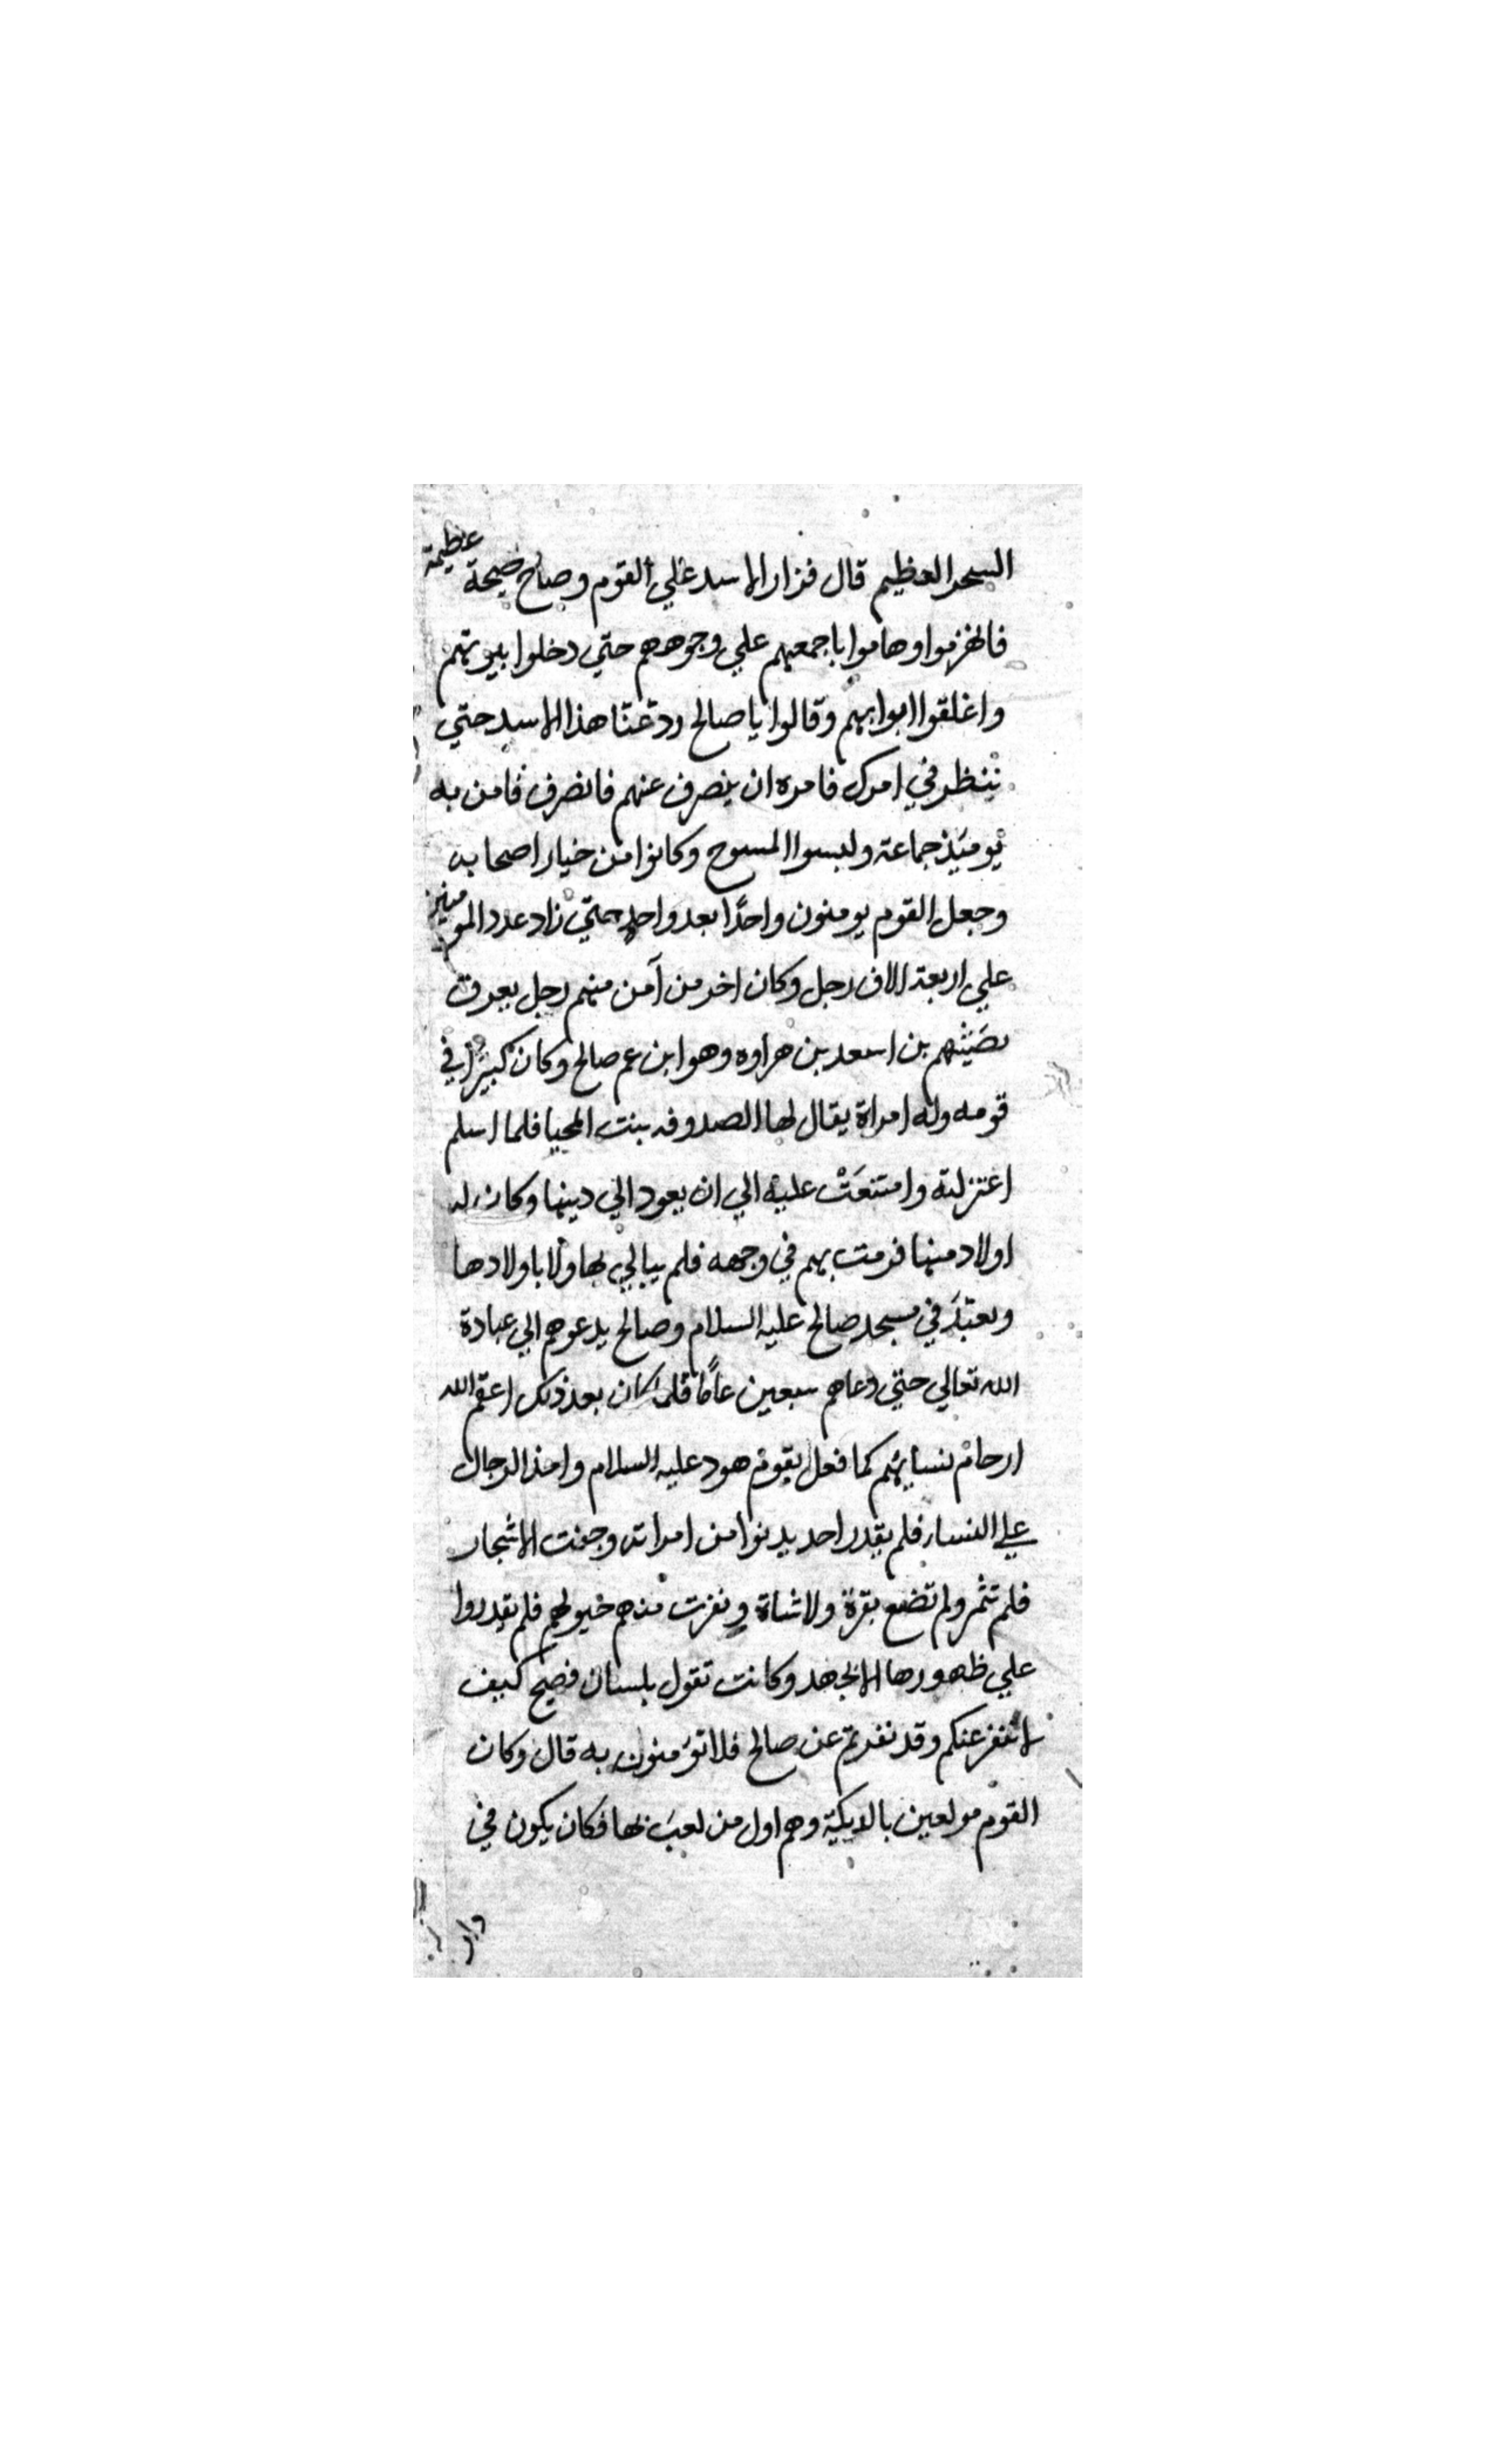 السحر العظيم قال فزار الاسد علي القوم وصاح صيحة عظيمة
فانهزموا وهاموا باجمعهم علي وجوههم حتي دخلوا بيوتهم
واغلقوا ابوابهم وقالوا يا صالح رد عنا هذا الاسد حتي
ننظر في امرك فامره ان ينصرف عنهم فانصرف فامن به
يوميذ جماعة ولبسوا المسوح وكانوا من خيار اصحابه
وجعل القوم يومنون واحدًا بعد واحد حتي زاد عدد المومنين
علي اربعة الاف رجل وكان اخر من آمن منهم رجل يعرف
بن اسعد بن هراوه وهو ابن عم صالح وكان كبيرًا في
قومه وله امراة يقال لها الصدوفه بنت المحيا فلما اسلم
اعتزلته وامتنعَتْ عليه الي ان يعود الي دينها وكان له
اولاد منها فرمت بهم في وجهه فلم يبالي بها ولا باولادها
وتعبّدَ في مسجد صالح عليه السلام وصالح يدعوهم الي عبادة
الله تعالي حتي دعاهم سبعين عامًا فلما كان بعد ذلك اعقم الله
ارحام نسايهم كما فعل بقوم هود عليه السلام واخذ الرجال
علي النساء فلم يقدر احد يدنوا من امراته وجفت الاشجار
فلم تثمر ولم تضع بقرة ولا شاة ونفرت منهم خيولهم فلم يقدروا
علي ظهورها الا بجهد وكانت تقول بلسان فصيح كيف
لا ننفر عنكم وقد نفرتم عن صالح فلا تؤمنون به قال وكان
القوم مولعين بالديكة وهم اول من لعبَ بها فكان يكون في